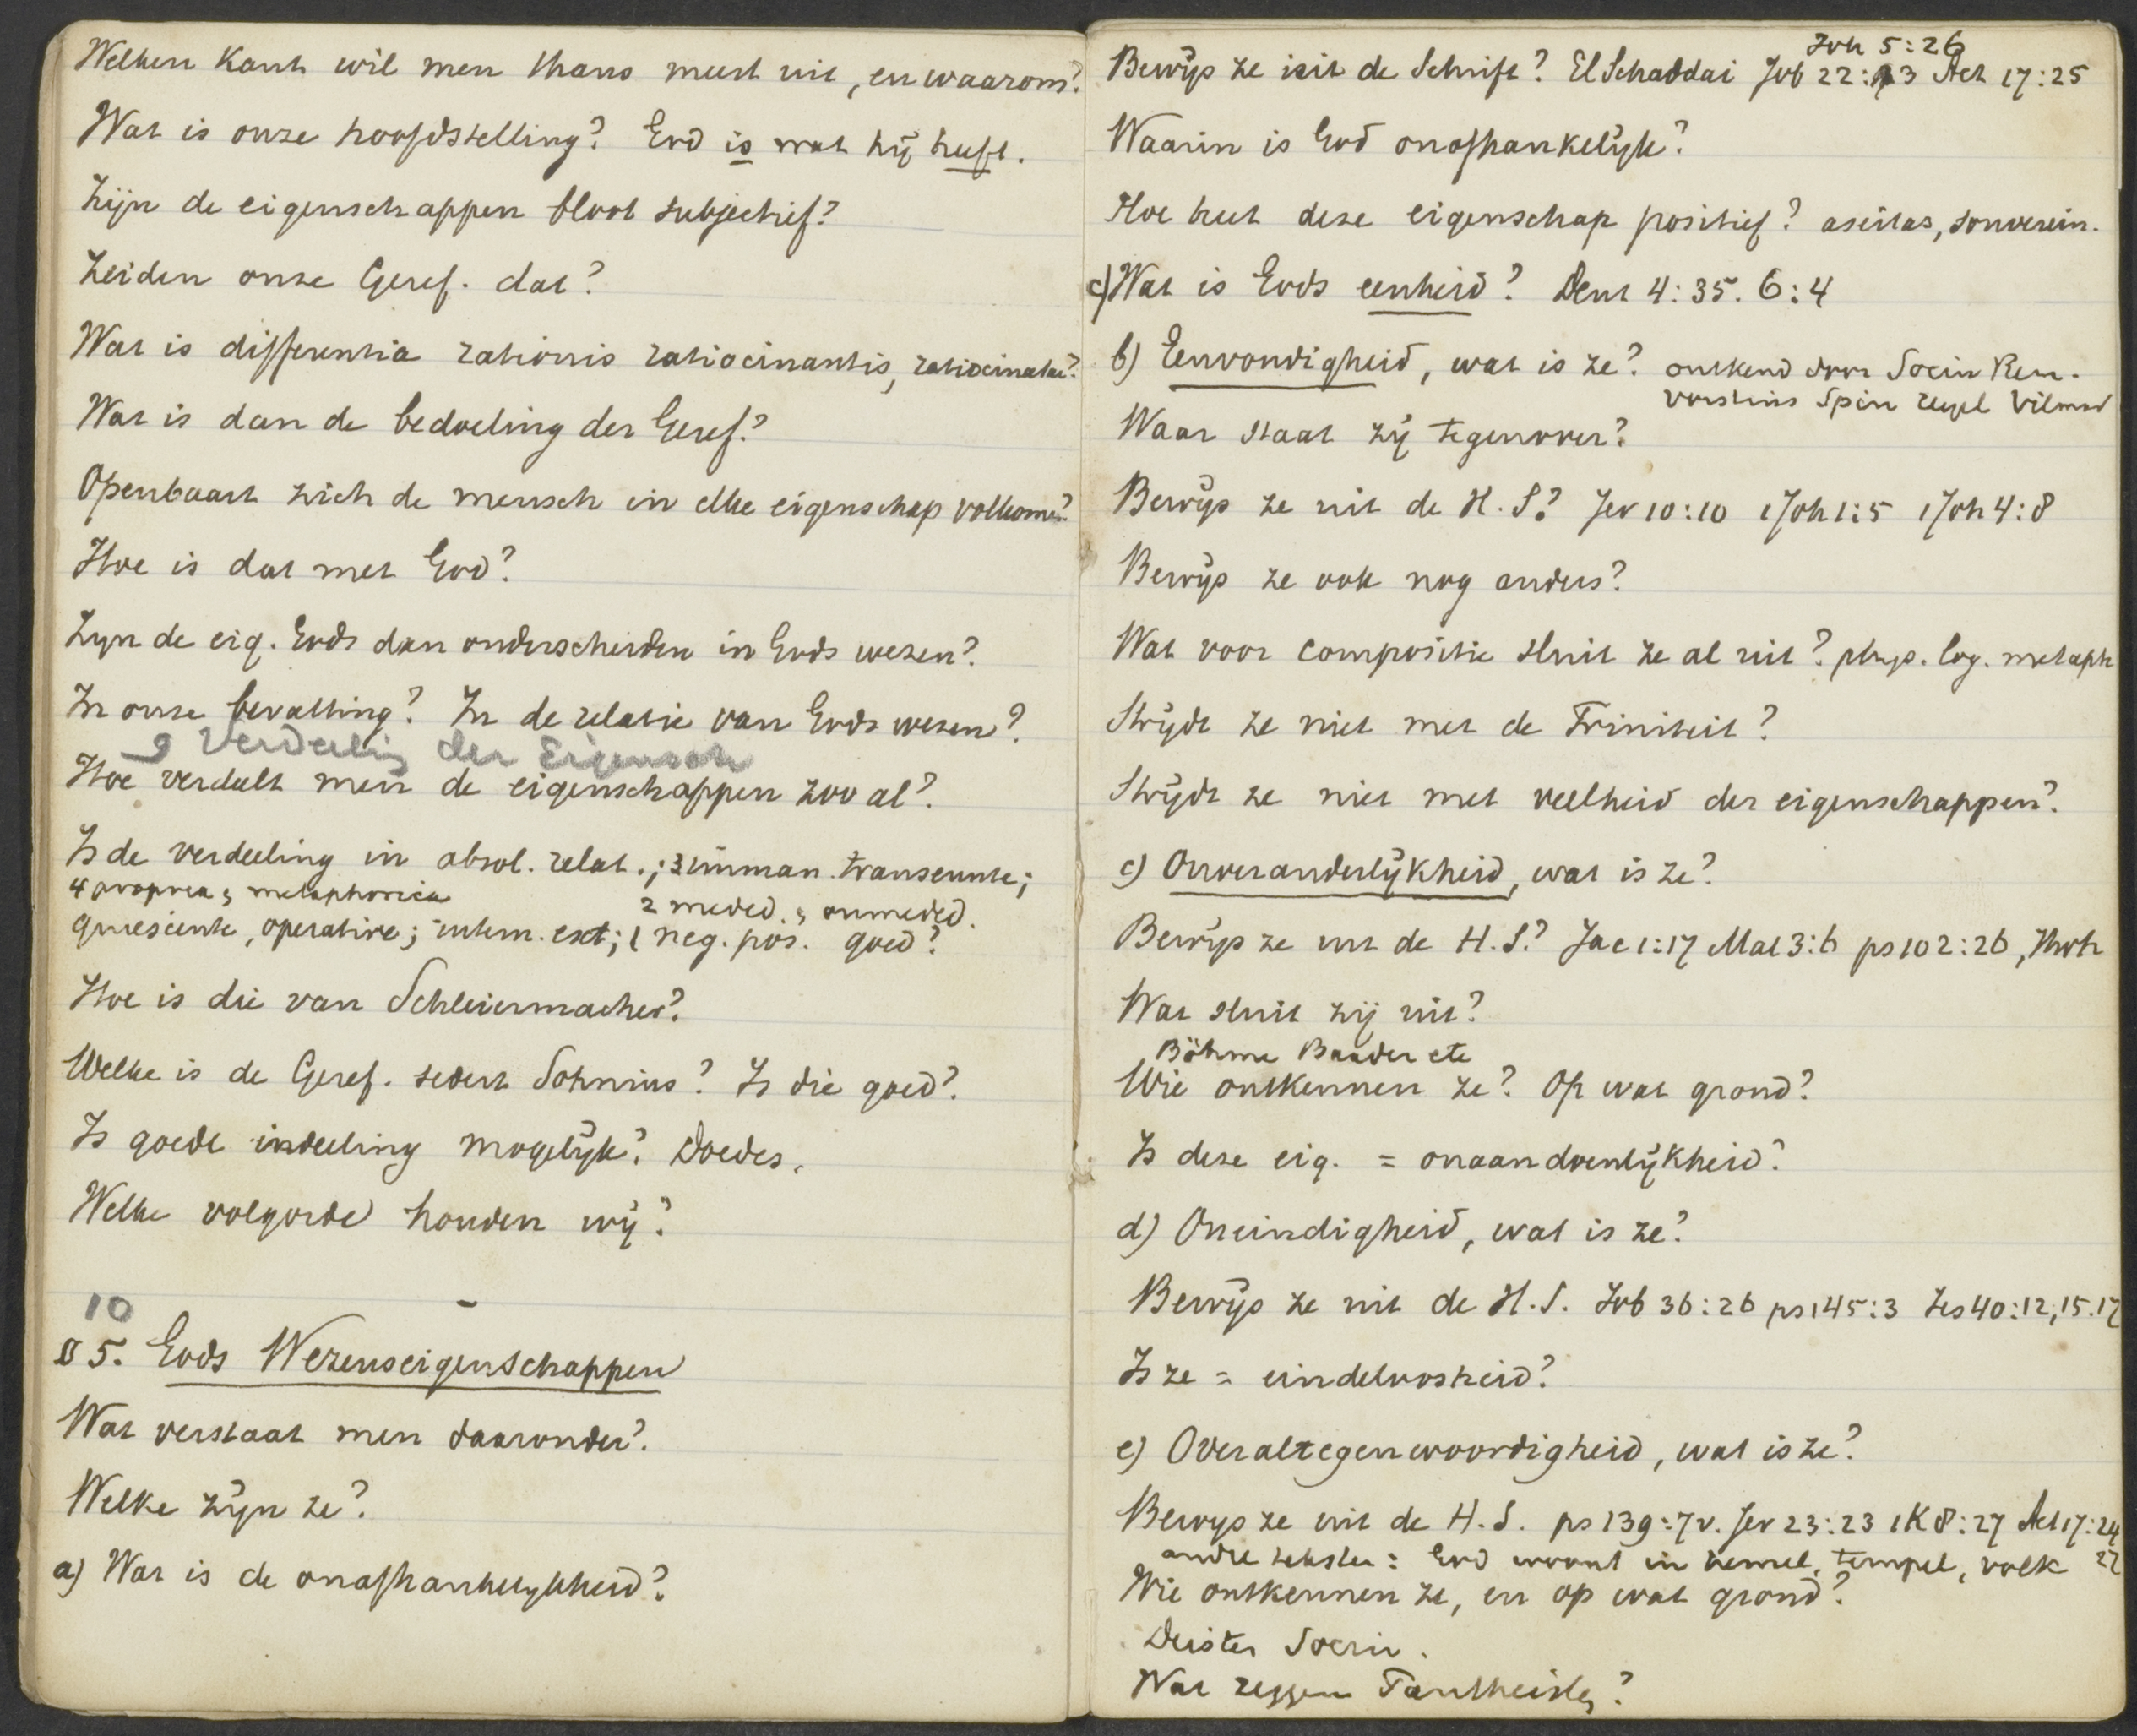 Welken Kant wil men thans meest uit, en waarom?
Wat is onze hoofdstelling? God is wat hij heeft.
Zijn de eigenschappen bloot subjectief?
Zeiden onze Geref. dat?
Wat is differentia rationis ratiocinantis, ratiocinatae?
Wat is dan de bedoeling der Geref.?
Openbaart zich de mensch in elke eigenschap volkomen?
Hoe is dat met God?
Zyn de eig. Gods dan onderscheiden in Gods wezen?
In onze bevatting? In de relatie van Gods wezen?
9 Verdeeling der Eigensch
Hoe verdeelt men de eigenschappen zoo al?
Is de verdeeling in absol. relat.; 3 imman. transeunte;
4 propria, metaphorica 2 meded. onmeded.
quiescente, operative; intern. ext; 1 neg. pos. goed?
Hoe is die van Schleiermacher?
Welke is de Geref. sedert Sohnius? Is die goed?
Is goede indeeling mogelijk? Doedes.
Welke volgorde houden wij?
10
§ 5. Gods Wezenseigenschappen
Wat verstaat men daaronder?
Welke zijn ze?
a) Wat is de onafhankelykheid?
Joh 5:26
Bewijs ze uit de Schrift? El Schaddai Job 22:3 Act 17:25
Waarin is God onafhankelijk?
Hoe heet deze eigenschap positief? aseitas, souverein.
c) Wat is Gods eenheid? Deut 4:35. 6:4
b) Eenvoudigheid, wat is ze? ontkend door Socin Rem.
Vorstius Spin Hegel Vilmar
Waar staat zij tegenover?
Bewijs ze uit de H.S.? Jer 10:10 1 Joh 1:5 1 Joh 4:8
Bewijs ze ook nog anders?
Wat voor compositie sluit ze al uit? phys. log. metaph
Strijdt ze niet met de Triniteit?
Strijdt ze niet met veelheid der eigenschappen?
c) Onveranderlijkheid, wat is ze?
Bewijs ze uit de H.S.? Jac 1:17 Mal 3:6 ps 102:26, Jhvh
Wat sluit zij uit?
Böhme Baader etc
Wie ontkennen ze? Op wat grond?
Is deze eig. = onaandoenlijkheid?
d) Oneindigheid, wat is ze?
Bewijs ze uit de H.S. Job 36:26 ps 145:3 Jes 40:12, 15.17
Is ze = eindeloosheid?
e) Overaltegenwoordigheid, wat is ze?
Bewys ze uit de H.S. ps 139:7v. Jer 23:23 1 K 8:27 Act 17:24
andre teksten: God woont in hemel, tempel, volk 27
Wie ontkennen ze, en op wat grond?
Deisten Socin.
Wat zeggen Pantheisten?